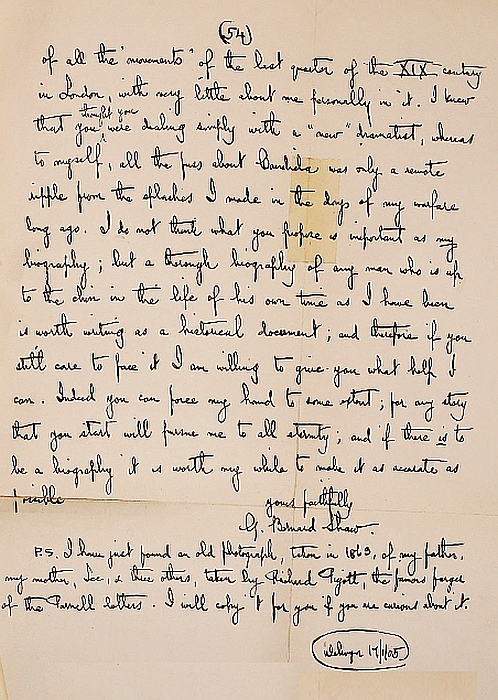 (54)
of all the "movements" of the last quarter of the XIX century
in London, with very little about me personally in it. I knew
that you thought you were dealing simply with a "new" dramatist, whereas
to myself, all the fuss about Candida was only a remote
ripple from the splashes I made in the days of my warfare
long ago. I do not think what you propose is important as my
biography; but a thorough biography of any man who is up
to the chin in the life of his own time as I have been
is worth writing as a historical document; and therefore if you
still care to face it I am willing to give you what help I
can. Indeed you can force my hand to some extent; for any story
that you start will pursue me to all eternity; and if there is to
be a biography it is worth my while to make it as accurate as
possible
yours faithfully
G. Bernard Shaw.
P.S. I have just found an old photograph, taken in 1863, of my father,
my mother, Lee, & three others, taken by Richard Pigott, the famous forger
of the Parnell letters. I will copy it for you if you are curious about it.
Welwyn 17/1/05